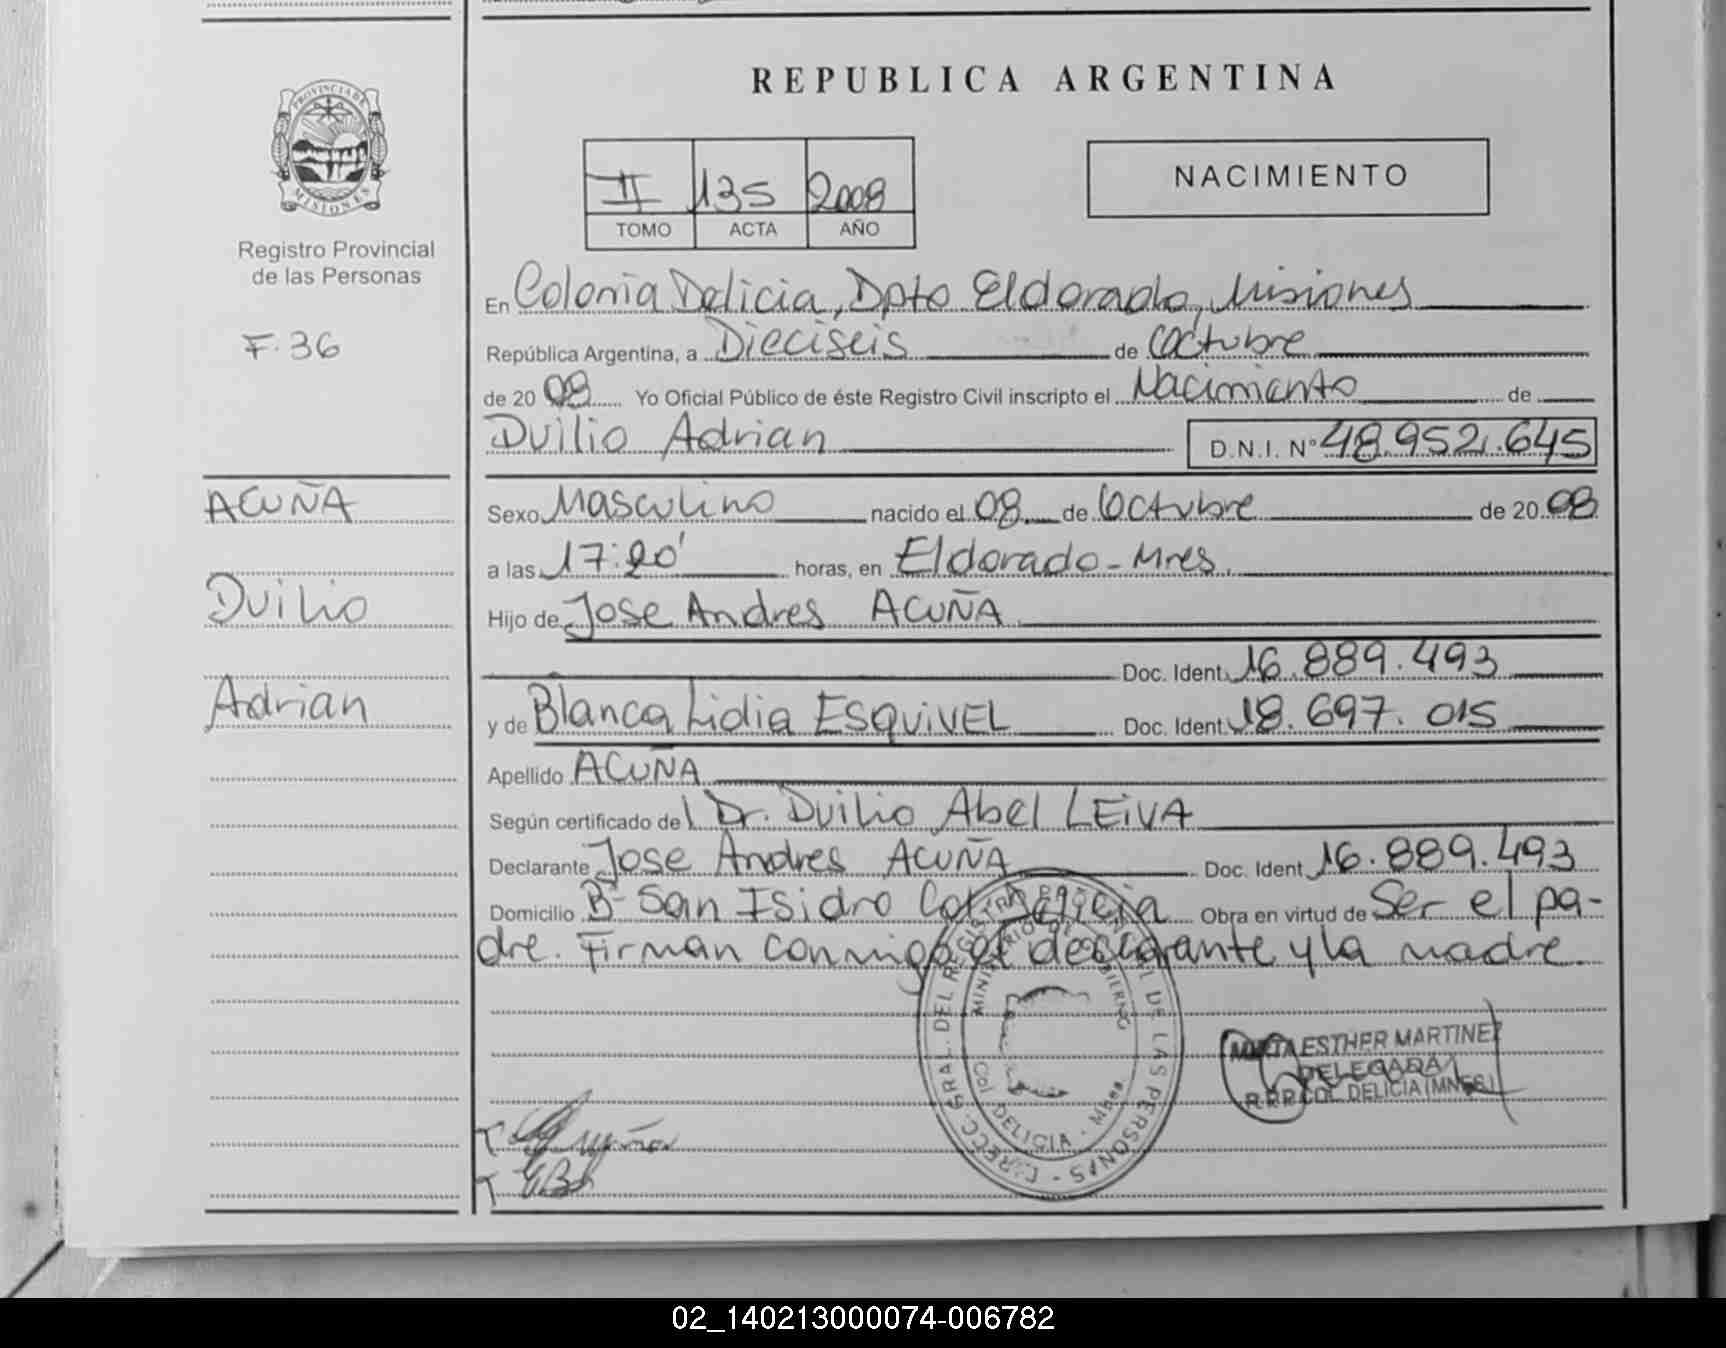 REPUBLICA ARGENTINA
PROVINCIA DE
MISIONES
Registro Provincial
de las Personas
F. 36
II 135 2008
TOMO ACTA AÑO
NACIMIENTO
En Colonia Delicia, Dpto Eldorado, Misiones
República Argentina, a Dieciseis de Octubre
de 20 08 Yo Oficial Público de éste Registro Civil inscripto el Nacimiento de
Duilio Adrian D.N.I. Nº 48.952.645
ACUÑA
Duilio
Adrian
Sexo Masculino nacido el 08 de Octubre de 20 08
a las 17:20' horas, en Eldorado - Mnes.
Hijo de Jose Andres ACUÑA
Doc. Ident. 16.889.493
y de Blanca Lidia ESQUIVEL Doc. Ident. 18.697.015
Apellido ACUÑA
Según certificado de l Dr. Duilio Abel LEIVA
Declarante Jose Andres ACUÑA Doc. Ident. 16.889.493
Domicilio Bº San Isidro Col. Delicia Obra en virtud de Ser el pa-
dre. Firman conmigo el declarante y la madre.
DIRECC. GRAL. DEL REGISTRO DE LAS PERSONAS
MINISTERIO DE GOBIERNO
Col. DELICIA - Mnes.
ESTHER MARTINEZ
DELEGADA
R.P.P. COL. DELICIA (MNES.)
02_140213000074-006782